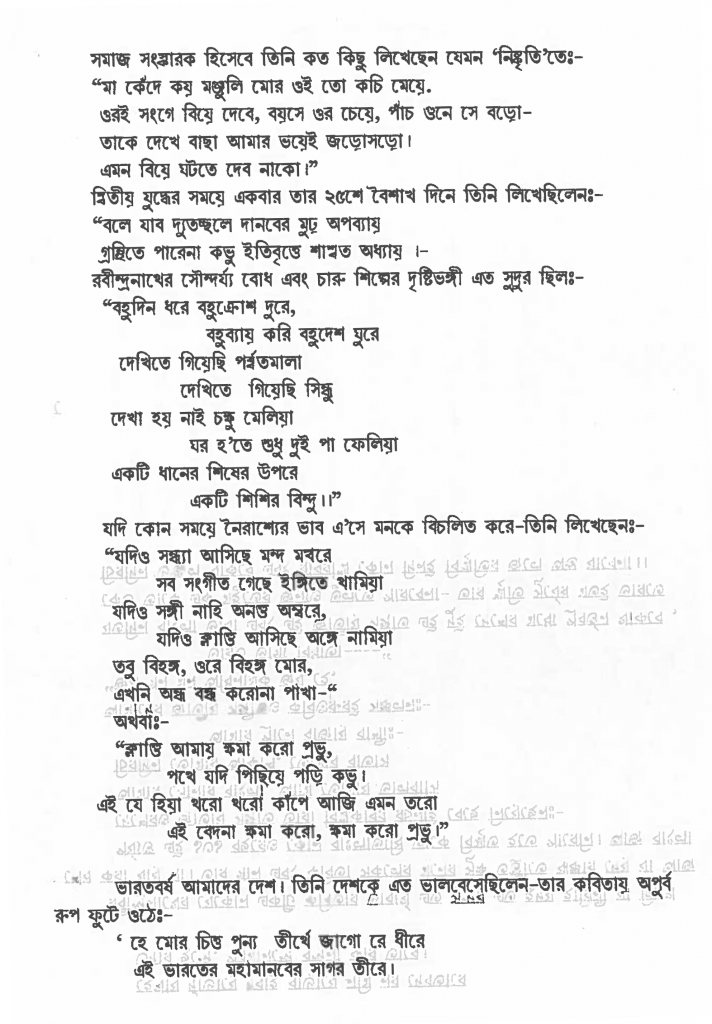 সমাজ সংস্কারক হিসেবে তিনি কত কিছু লিখেছেন যেমন ‘নিষ্কৃতি’তেঃ-
“মা কেঁদে কয় মঞ্জুলি মোর ওই তো কচি মেয়ে.
ওরই সংগে বিয়ে দেবে, বয়সে ওর চেয়ে, পাঁচ গুনে সে বড়ো-
তাকে দেখে বাছা আমার ভয়েই জড়োসড়ো।
এমন বিয়ে ঘটতে দেব নাকো।”
দ্বিতীয় যুদ্ধের সময়ে একবার তার ২৫শে বৈশাখ দিনে তিনি লিখেছিলেনঃ-
“বলে যাব দ্যুতচ্ছলে দানবের মুঢ় অপব্যায়
গ্রন্থিতে পারেনা কভু ইতিবৃত্তে শাশ্বত অধ্যায় ।-
রবীন্দ্রনাথের সৌন্দর্য্য বোধ এবং চারু শিল্পের দৃষ্টিভঙ্গী এত সুদুর ছিলঃ-
“বহুদিন ধরে বহুক্রোশ দুরে,
বহুব্যায় করি বহুদেশ ঘুরে
দেখিতে গিয়েছি পর্ব্বতমালা
দেখিতে গিয়েছি সিন্ধু
দেখা হয় নাই চক্ষু মেলিয়া
ঘর হ’তে শুধু দুই পা ফেলিয়া
একটি ধানের শিষের উপরে
একটি শিশির বিন্দু।।”
যদি কোন সময়ে নৈরাশ্যের ভাব এ’সে মনকে বিচলিত করে-তিনি লিখেছেনঃ-
“যদিও সন্ধ্যা আসিছে মন্দ মন্থরে
সব সংগীত গেছে ইঙ্গিতে থামিয়া
যদিও সঙ্গী নাহি অনন্ত অম্বরে,
যদিও ক্লান্তি আসিছে অঙ্গে নামিয়া
তবু বিহঙ্গ, ওরে বিহঙ্গ মোর,
এখনি অন্ধ বন্ধ করোনা পাখা-“
অথবাঃ-
“ক্লান্তি আমায় ক্ষমা করো প্রভু,
পথে যদি পিছিয়ে পড়ি কভু।
এই যে হিয়া থরো থরো কাঁপে আজি এমন তরো
এই বেদনা ক্ষমা করো, ক্ষমা করো প্রভু।”
ভারতবর্ষ আমাদের দেশ। তিনি দেশকে এত ভালবেসেছিলেন-তার কবিতায় অপুর্ব
রুপ ফুটে ওঠেঃ-
‘ হে মোর চিত্ত পুন্য তীর্থে জাগো রে ধীরে
এই ভারতের মহামানবের সাগর তীরে।